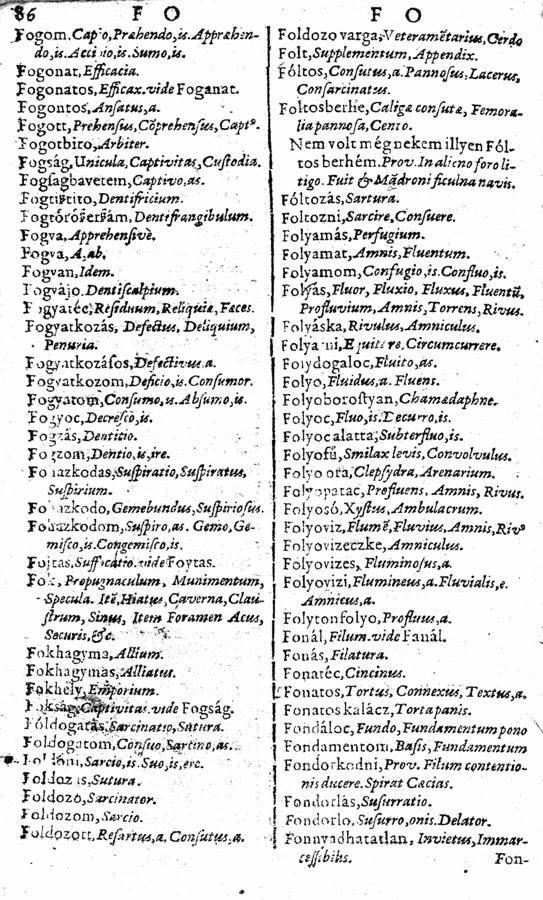 86 F O
Fogom, Capio, Præhendo, is. Appræhen-
do, is. Accipio, is. Sumo, is.
Fogonat, Efficacia.
Fogonatos, Efficax. vide Foganat.
Fogontos, Anſatus, a.
Fogott, Prehenſus, Cõprehenſus, Captꝰ.
Fogotbiro, Arbiter.
Fogság, Unicula, Captivitas, Cuſtodia.
Fogſagbavetem, Captivo, as.
Fogtiſtito, Dentifricium.
Fogtóróſzerſám, Dentifrangibulum.
Fogva, Apprehenſivè.
Fogva, A, ab.
Fogvan, Idem.
Fogvájo, Dentiſcalpium.
Fogyatéc, Reſiduum, Reliquiæ, Fæces.
Fogyatkozás, Defectus, Deliquium,
Penuria.
Fogyatkozáſos, Defectivus. a.
Fogyatkozom, Deficio, is. Conſumor.
Fogyatom, Conſumo, is. Abſumo, is.
Fogyoc, Decreſco, is.
Fogzás, Dentitio.
Fogzom, Dentio, is, ire.
Fohazkodas, Suſpiratio, Suſpiratus,
Suſpirium.
Fohazkodo, Gemebundus, Suſpirioſus.
Fohazkodom, Suſpiro, as. Gemo, Ge-
miſco, is. Congemiſco, is.
Fojtas, Suffocatio. vide Foytas.
Fok, Propugnaculum, Munimentum,
Specula. Itẽ, Hiatus, Caverna, Clau-
ſtrum, Sinus, Item Foramen Acus,
Securis, &c.
Fokhagyma, Allium.
Fokhagymas, Alliatus.
Fokhely, Emporium.
Fokság, Captivitas. vide Fogság.
Fóldogatás, Sarcinatio, Sutura.
Foldogatom, Conſuo, Sarcino, as.
Sarcio, is. Suo, is, ere.
Foldozás, Sutura.
Foldozó, Sarcinator.
Foldozom, Sarcio.
Foldozott, Reſartus, a. Conſutus, a.
F O
Foldozo varga, Veteramẽtarius, Cerdo
Folt, Supplementum, Appendix.
Fóltos, Conſutus, a. Pannoſus, Lacerus,
Conſarcinatus.
Foltosberhe, Caligæ conſutæ, Femora-
lia pannoſa, Cento.
Nem volt még nekem illyen Fól-
tos berhém. Prov. In alieno foro li-
tigo. Fuit & Mãdroni ficulna navis.
Fóltozás, Sartura.
Foltozni, Sarcire, Conſuere.
Folyamás, Perfugium.
Folyamat, Amnis, Fluentum.
Folyamom, Confugio, is. Confluo, is.
Folyás, Fluor, Fluxio, Fluxus, Fluentũ,
Profluvium, Amnis, Torrens, Rivus.
Folyáska, Rivulus, Amniculus.
Folyamni, Equitare. Circumcurrere.
Folydogaloc, Fluito, as.
Folyo, Fluidus, a. Fluens.
Folyoboroſtyan, Chamædaphne.
Folyoc, Fluo, is. Decurro, is.
Folyoc alatta, Subterfluo, is.
Folyofú, Smilax levis, Convolvulus.
Folyo ora, Clepſydra, Arenarium.
Folyopatac, Profluens, Amnis, Rivus.
Folyosó, Xyſtus, Ambulacrum.
Folyoviz, Flumẽ, Fluvius, Amnis, Rivꝰ
Folyovizeczke, Amniculus.
Folyovizes, Fluminoſus, a.
Folyovizi, Flumineus, a. Fluvialis, e.
Amnicus, a.
Folytonfolyo, Profluus, a.
Fonál, Filum. vide Fanál.
Fonás, Filatura.
Fonatéc, Cincinus.
Fonatos, Tortus, Connexus, Textus, a.
Fonatos kalácz, Torta panis.
Fondáloc, Fundo, Fundamentum pono
Fondamentom, Baſis, Fundamentum
Fondorkodni, Prov. Filum contentio-
nis ducere. Spirat Cæcias.
Fondorlás, Suſurratio.
Fondorlo, Suſurro, onis. Delator.
Fonnyadhatatlan, Invietus, Immar-
ceſſibilis.
Fon-